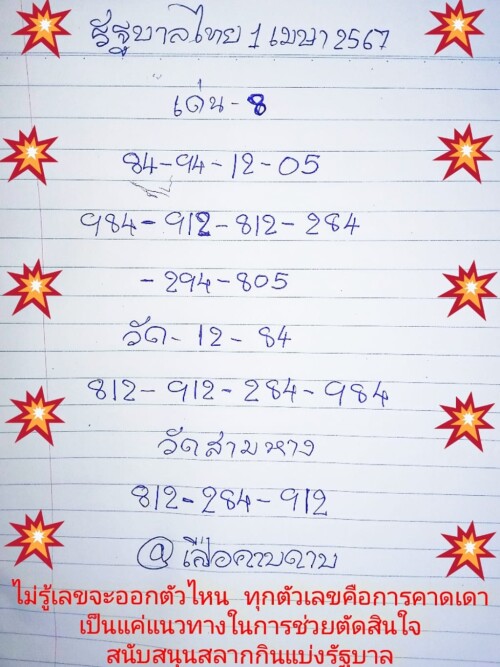 รัฐบาลไทย 1 เมษา 2567
เด่น - 8
84-94-12-05
984-912-812-284
-294-805
วัด - 12 - 84
812-912-284-984
วัดสามหาง
812-284-912
@เสือคาบดาบ
ไม่รู้เลขจะออกตัวไหน ทุกตัวเลขคือการคาดเดา
เป็นแค่แนวทางในการช่วยตัดสินใจ
สนับสนุนสลากกินแบ่งรัฐบาล